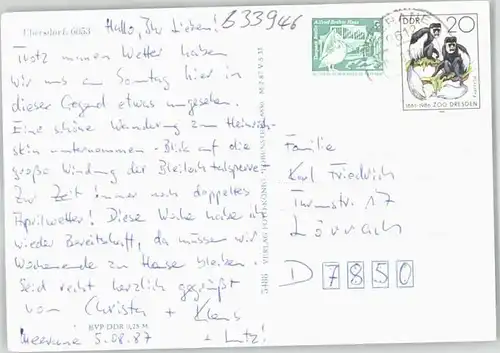 Hallo, Ihr Lieben!
b33946
Thierdorf, 6653
Trotz miesen Wetter haben
wir uns am Sonntag hier in
dieser Gegend etwas umgesehen.
Eine schöne Wanderung zum Heinrich-
stein unternommen - Blick auf die
große Windung der Bleilochtalsperre!
Zur Zeit immer noch doppeltes
Aprilwetter! Diese Woche habe ich
wieder Bereitschaft, da müssen wir
Wochenende zu Hause bleiben.
Seid recht herzlich gegrüßt
von Christa + Klaus
Meerane 5.08.87 + Lutz!
EVP DDR 0,25 M
VERLAG
DDR 20
1861-1986 ZOO DRESDEN
5
Familie
Karl Friedrich
Turmstr. 17
Lörrach
D 7850